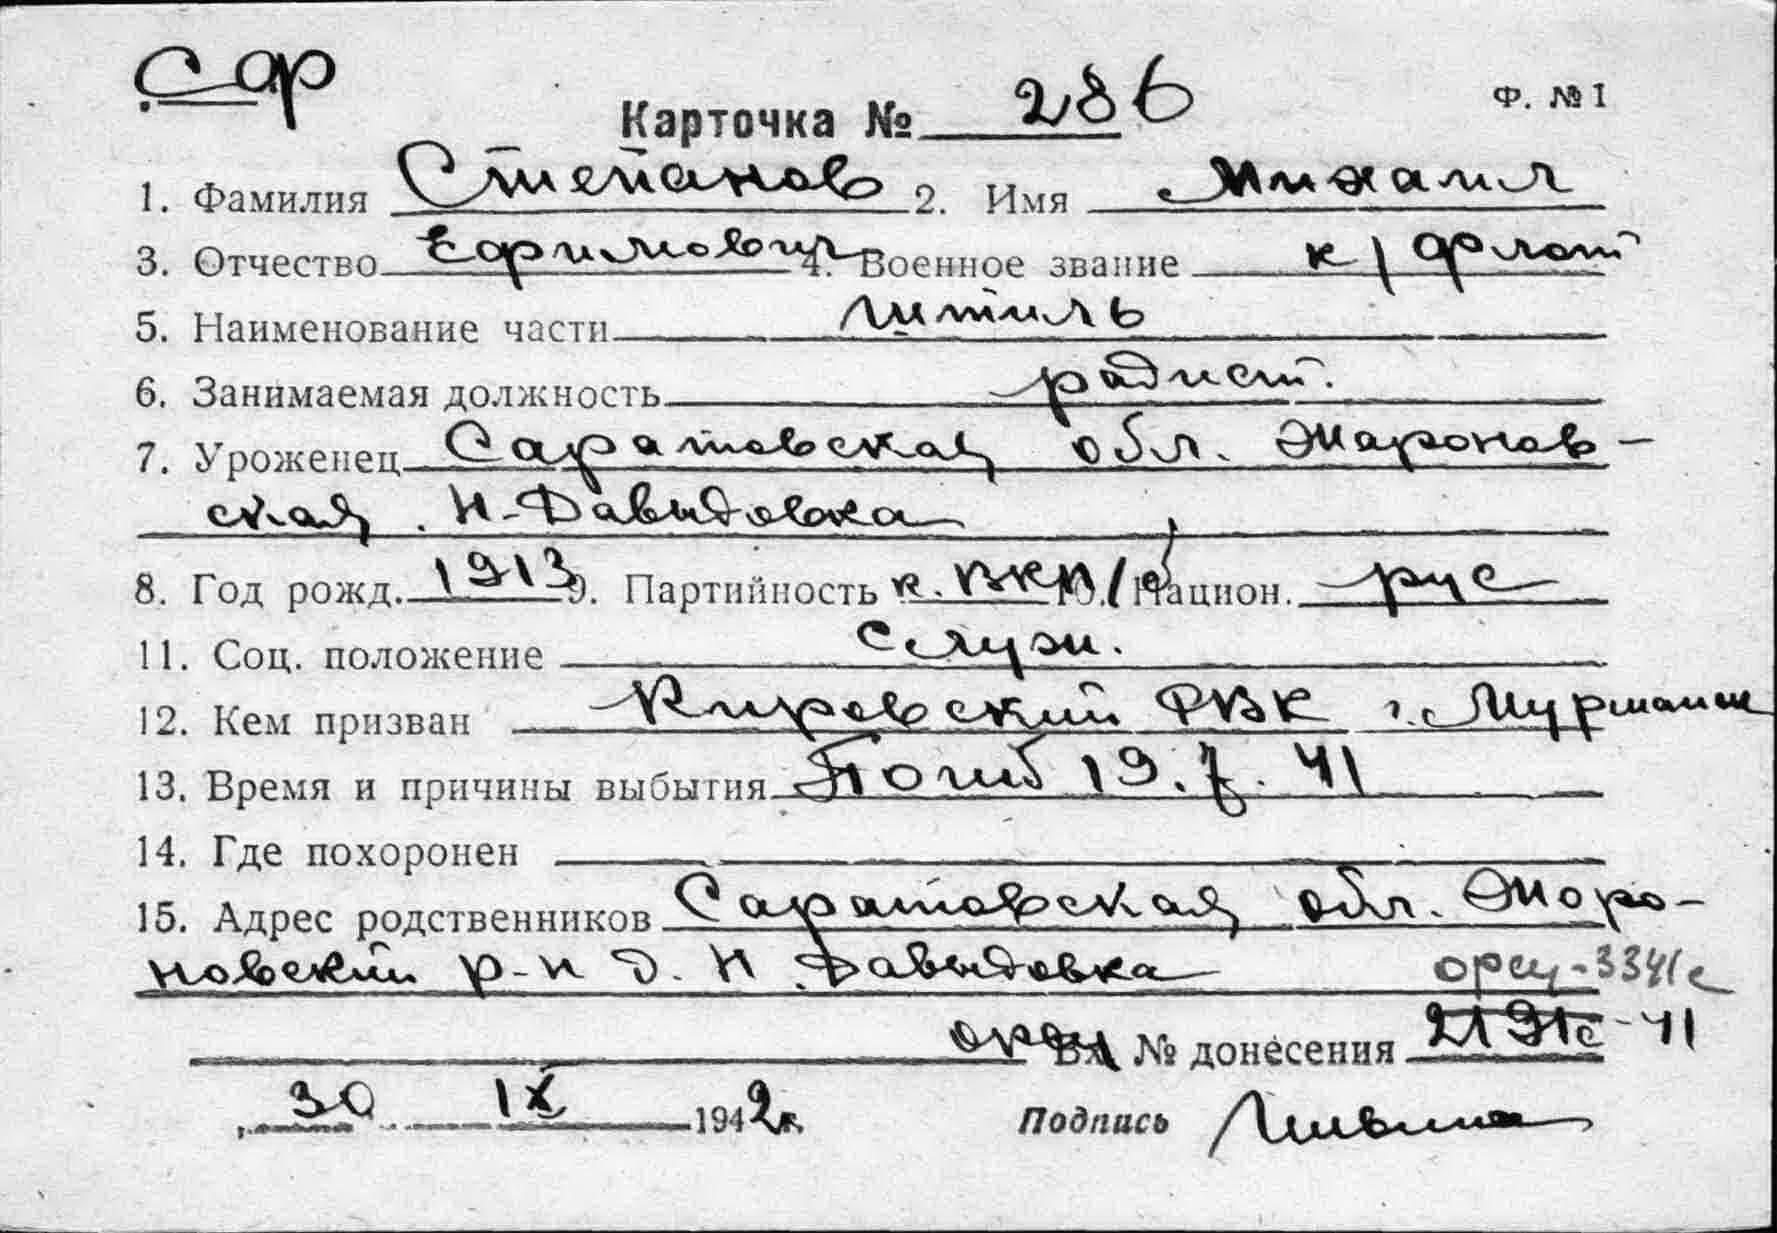 Сар
Карточка № 286 Ф. № 1
1. Фамилия Степанов 2. Имя Михаил
3. Отчество Ефимович 4. Военное звание к/флот
5. Наименование части Штиль
6. Занимаемая должность радист.
7. Уроженец Саратовская обл. Жаронов-
ская. Н-Давыдовка
8. Год рожд. 1913 9. Партийность к. ВКП/б 10. Национ. рус
11. Соц. положение служ.
12. Кем призван Кировский РВК г. Мурманск
13. Время и причины выбытия Погиб 19.7.41
14. Где похоронен
15. Адрес родственников Саратовская обл. Жоро-
новский р-н д. Н Давыдовка 3341с
Вх № донесения 2191с-41
30 IX 1942г.
Подпись